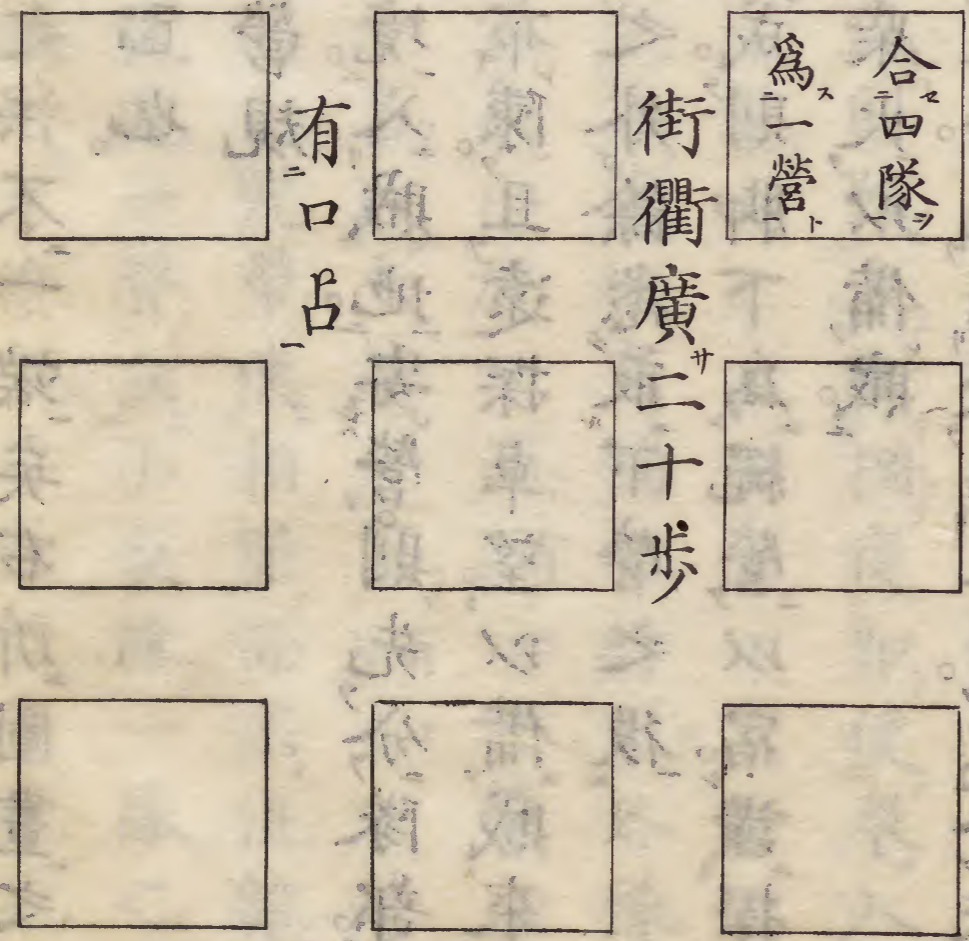 合四隊
爲一營
街衢廣二十歩
有口占